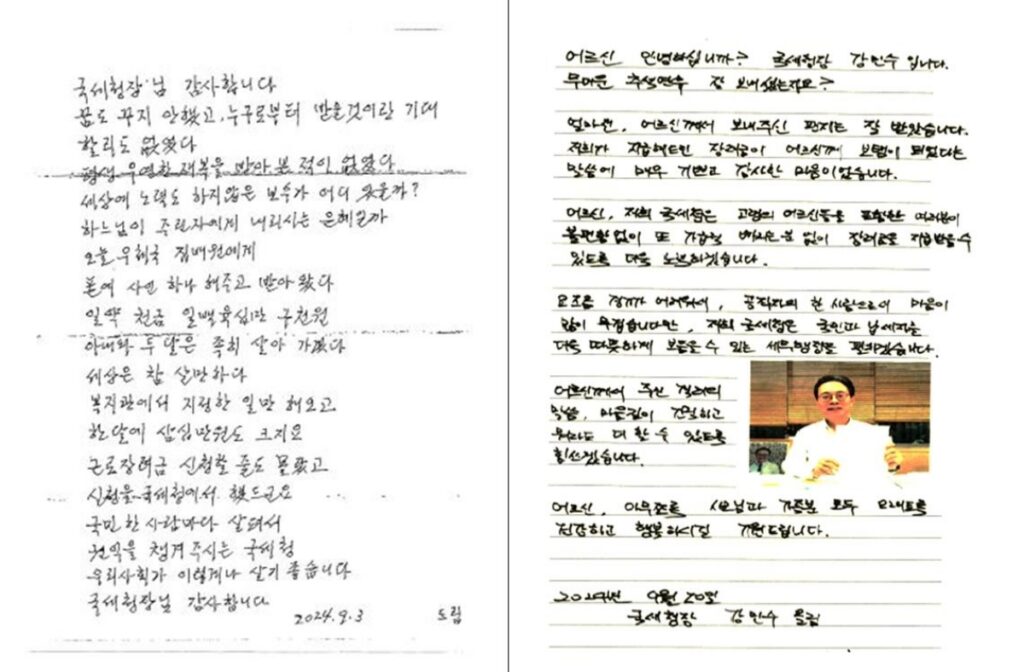 국세청장님 감사합니다
꿈도 꾸지 안했고, 누구로부터 받을것이란 기대
할리도 없었다
평생 우연한 재복을 받아 본 적이 없었다
세상에 노력도 하지않은 보수가 어디 있을까?
하느님이 주린자에게 내리시는 은혜일까
오늘 우체국 집배원에게
몸에 사인 하나 해주고 받아 왔다
일약 천금 일백육십만 구천원
아내와 두 달은 족히 살아 가겠다
세상은 참 살만하다
복지관에서 지정한 일만 해오고
한달에 삼십만원도 크지요
근로장려금 신청할 줄도 몰랐고
신청을 국세청에서 했드군요
국민 한사람마다 살펴서
권익을 챙겨주시는 국세청
우리사회가 이렇게나 살기 좋습니다
국세청장님 감사합니다
2024.9.3 드림
어르신 안녕하십니까? 국세청장 강민수입니다.
무더운 추석연휴 잘 보내셨는지요?
얼마전, 어르신께서 보내주신 편지는 잘 받았습니다.
저희가 지급해드린 장려금이 어르신께 보탬이 되었다는
말씀에 매우 기쁘고 감사한 마음이었습니다.
어르신, 저희 국세청은 고령의 어르신들을 포함한 여러분이
불편함없이 또 가급적 빠지는 분 없이 장려금을 지급받을 수
있도록 더욱 노력하겠습니다.
요즈음 경기가 어려워서, 공직자의 한 사람으로서 마음이
많이 무겁습니다만, 저희 국세청은 국민과 납세자를
더욱 따뜻하게 보듬을 수 있는 세무행정을 펼치겠습니다.
어르신께서 주신 격려의
말씀, 마음깊이 간직하고
뭐라도 더 할 수 있도록
힘쓰겠습니다.
어르신, 아무쪼록 사모님과 가족분 모두 오래도록
건강하고 행복하시길 기원드립니다.
2024년 9월 20일
국세청장 강민수 올림